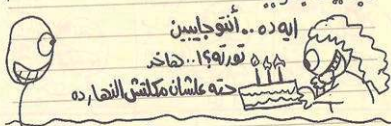 ايه ده .. أنتو جايبين
تورته؟! .. هاخد
حته علشان مكلتش النهارده